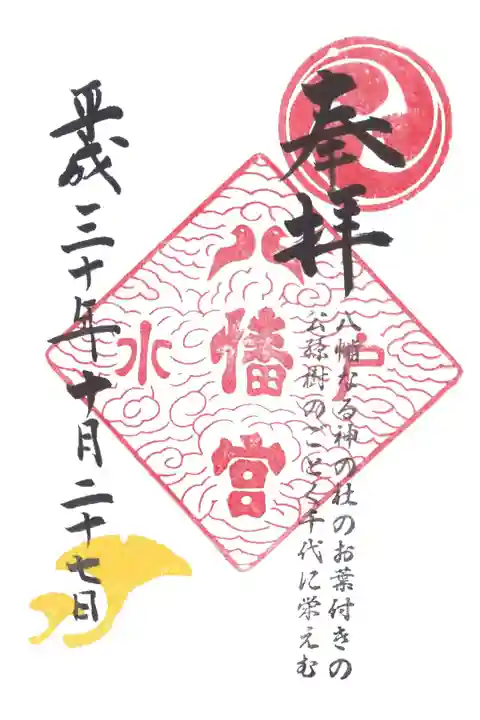 奉拝
八幡なる神の杜のお葉付きの
公孫樹のごとく千代に栄えむ
八幡宮
水
平成三十年十月二十七日